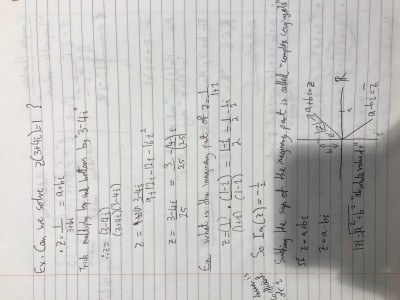 Ex. Can we solve z(3+4i)=1 ?
∴ z = 1/(3+4i) = a+bi
Trick: multiply top and bottom by 3-4i
∴ z = (3-4i)/((3+4i)(3-4i))
z = 3-4i/9+12i-12i-16i²
z = 3-4i/25 = 3/25 - (4/25)i
Ex. What is the imaginary part of z = 1/(1+i)
z = (1)/(1+i) · (1-i)/(1-i) = 1-i/2 = 1/2 - 1/2 i
So Im(z) = -1/2
the sign of the imaginary part is called "complex conjugate"
If z = a+bi
z = a-bi
|z| = √a²+b² "absolute value"
a+bi = z
|z|
b
a
R
i
a-bi = z̄